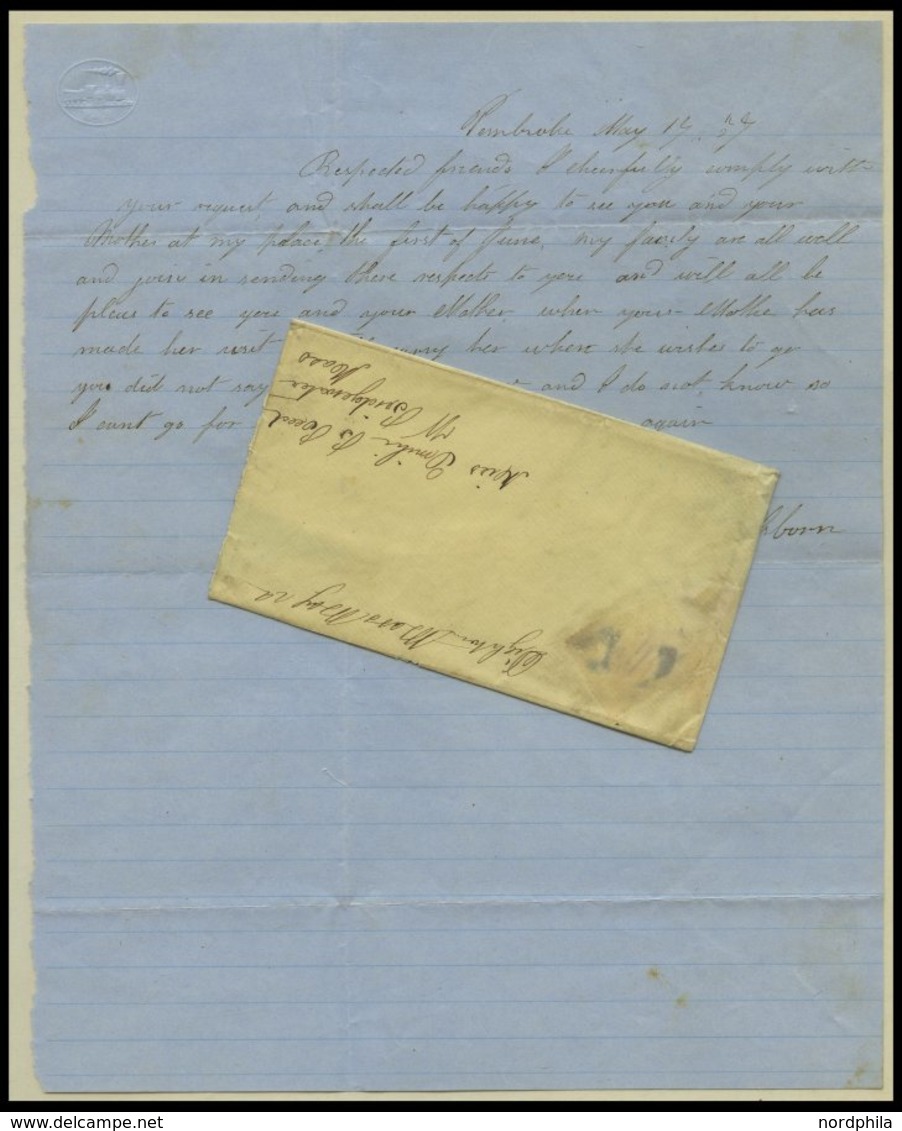 Pembroke May 17
Respected friends I cheerfully comply with
your request and shall be happy to see you and your
Mother at my place the first of June, my family are all well
and join in sending there respects to you and will all be
pleas to see you and your Mother when your Mothe has
made her visit carry her where she wishes to go
you did not say and I do not know so
I cant go for again
born
Miss B Reed
W Bridgewater
Mass
Dighton Mass May
nordphila